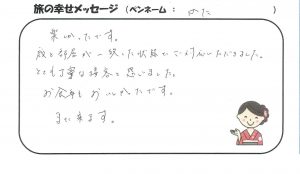 旅の幸せメッセージ（ペンネーム：ゆた）
楽しかったです。
部屋が一緒った状態でご対応いただきました。
とても丁寧な接客と感じました。
お食事もおいしかったです。
また来ます。